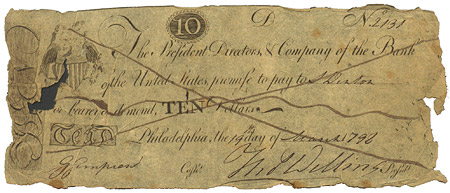 10 D No 2131
The President Directors, & Company of the Bank
of the United States, promise to pay to
or bearer on demand, TEN Dollars
Ten
Philadelphia, the day of March 1796
Cashr. Tho Willing Presidt.